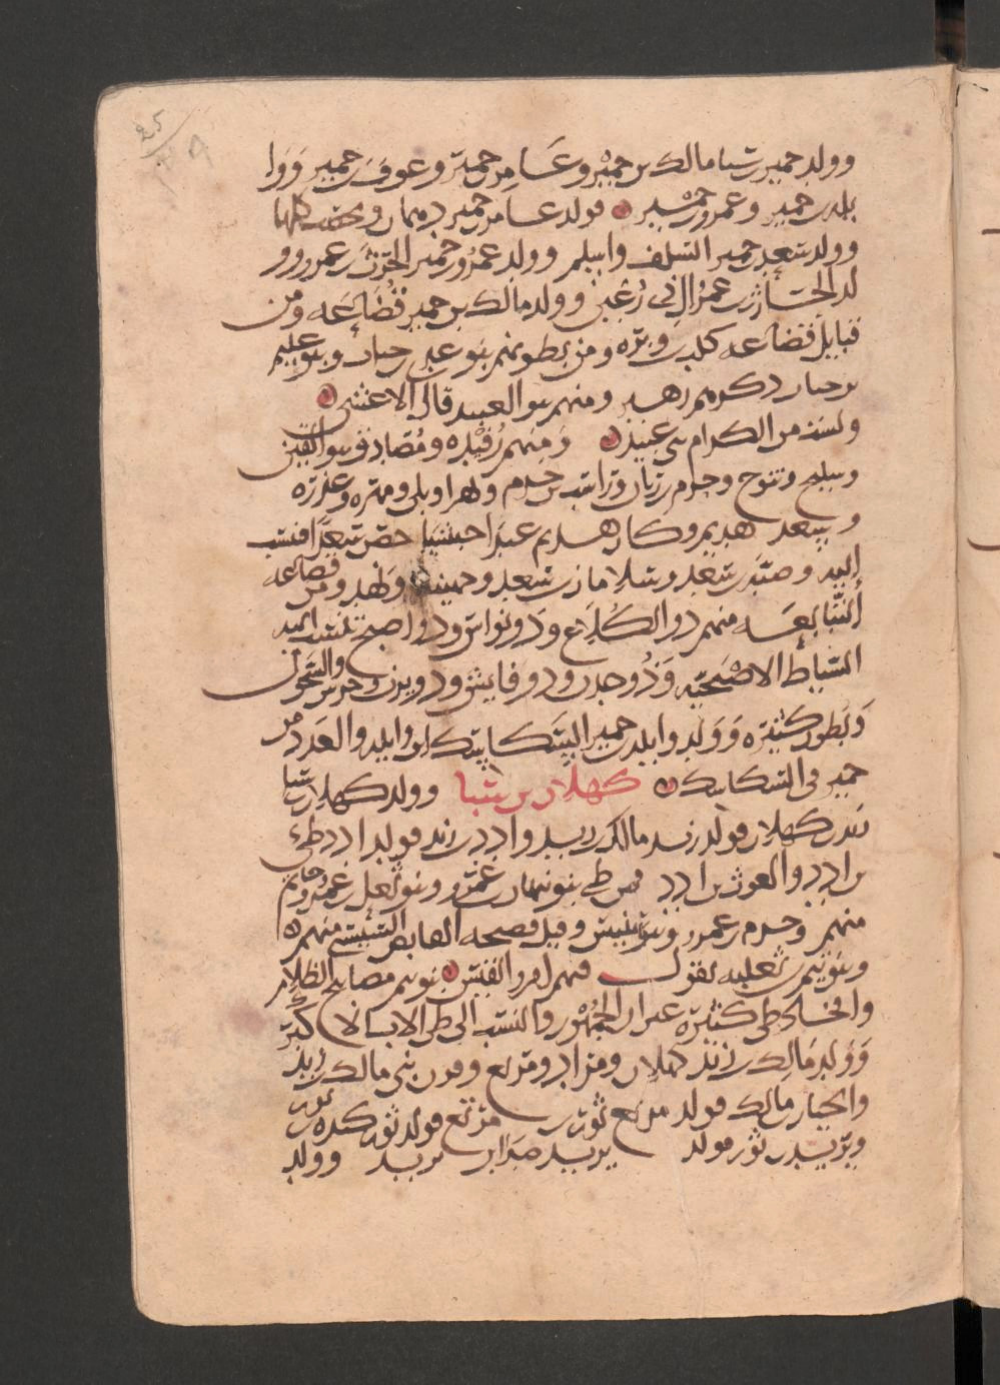 وولد حمير بن سبا مالك بن حمير وعامر بن حمير وعوف بن حمير ووا
يل بن حمير وعمرو بن حمير فولد عامر بن حمير دهمان و كلها
وولد سعد بن حمير السلف واسلم وولد عمرو بن حمير الحرث بن عمرو وو
لد الحارث بن عمرو ال ذى رُعَين وولد مالك بن حمير قُضَاعَه ومن
قبايل قضاعه كلب بن وبره ومن بطونهم بنو عدى بن جناب وبنو عليم
بن جناب ذكرهم زهير ومنهم بنو العبيد قال الاعشى
ولست من الكرام بنى عبيد ومنهم رُفَيْده ومُصَاد وبنو القين
وسليح وتنوخ وجرم بن ربان وراسب بن جرم وبهرا وبلى ومهره وعذره
وسعد هذيم وكان هذيم عبدا حبشيا حضن سعدا فنسب
اليه وضنه بن سعد وسلامان بن سعد وجهينه ونهد ومن قضاعه
التبابعه منهم ذو الكلاع وذو نواس وذو اصبح تنسب اليه
السياط الاصبحيه وذو جدن وذو فايش وذو يزن وجرش والسحول
وبطون كثيره وولد وايل بن حمير السكاسك بن وايل والعدد من
حمير فى السكاسك كهلان بن سبا وولد كهلان بن سبا
زيد بن كهلان فولد زيد مالك بن زيد وادد بن زيد فولد ادد طى
بن ادد والغوث بن ادد فمن طى بنو نبهان بن عمرو وبنو ثعل بن عمرو وحاتم
منهم وجرم بن عمرو وبنو سنبس وقبيصه
وبنو تيم بن ثعلبه يقول فيهم امرو القيس بنو تيم مصابيح الظلام
وافخاذ طى كثيره غير ان الجمهور والنسب الى طى الاب الاكبر
وولد مالك بن زيد بن كهلان ومراد ومرتع وهمدان بنى مالك بن زيد
والخيار بن مالك فولد مرتع ثور بن مرتع فولد ثور كنده بن ثور
ويزيد بن ثور فولد يزيد صدا بن يزيد وولد